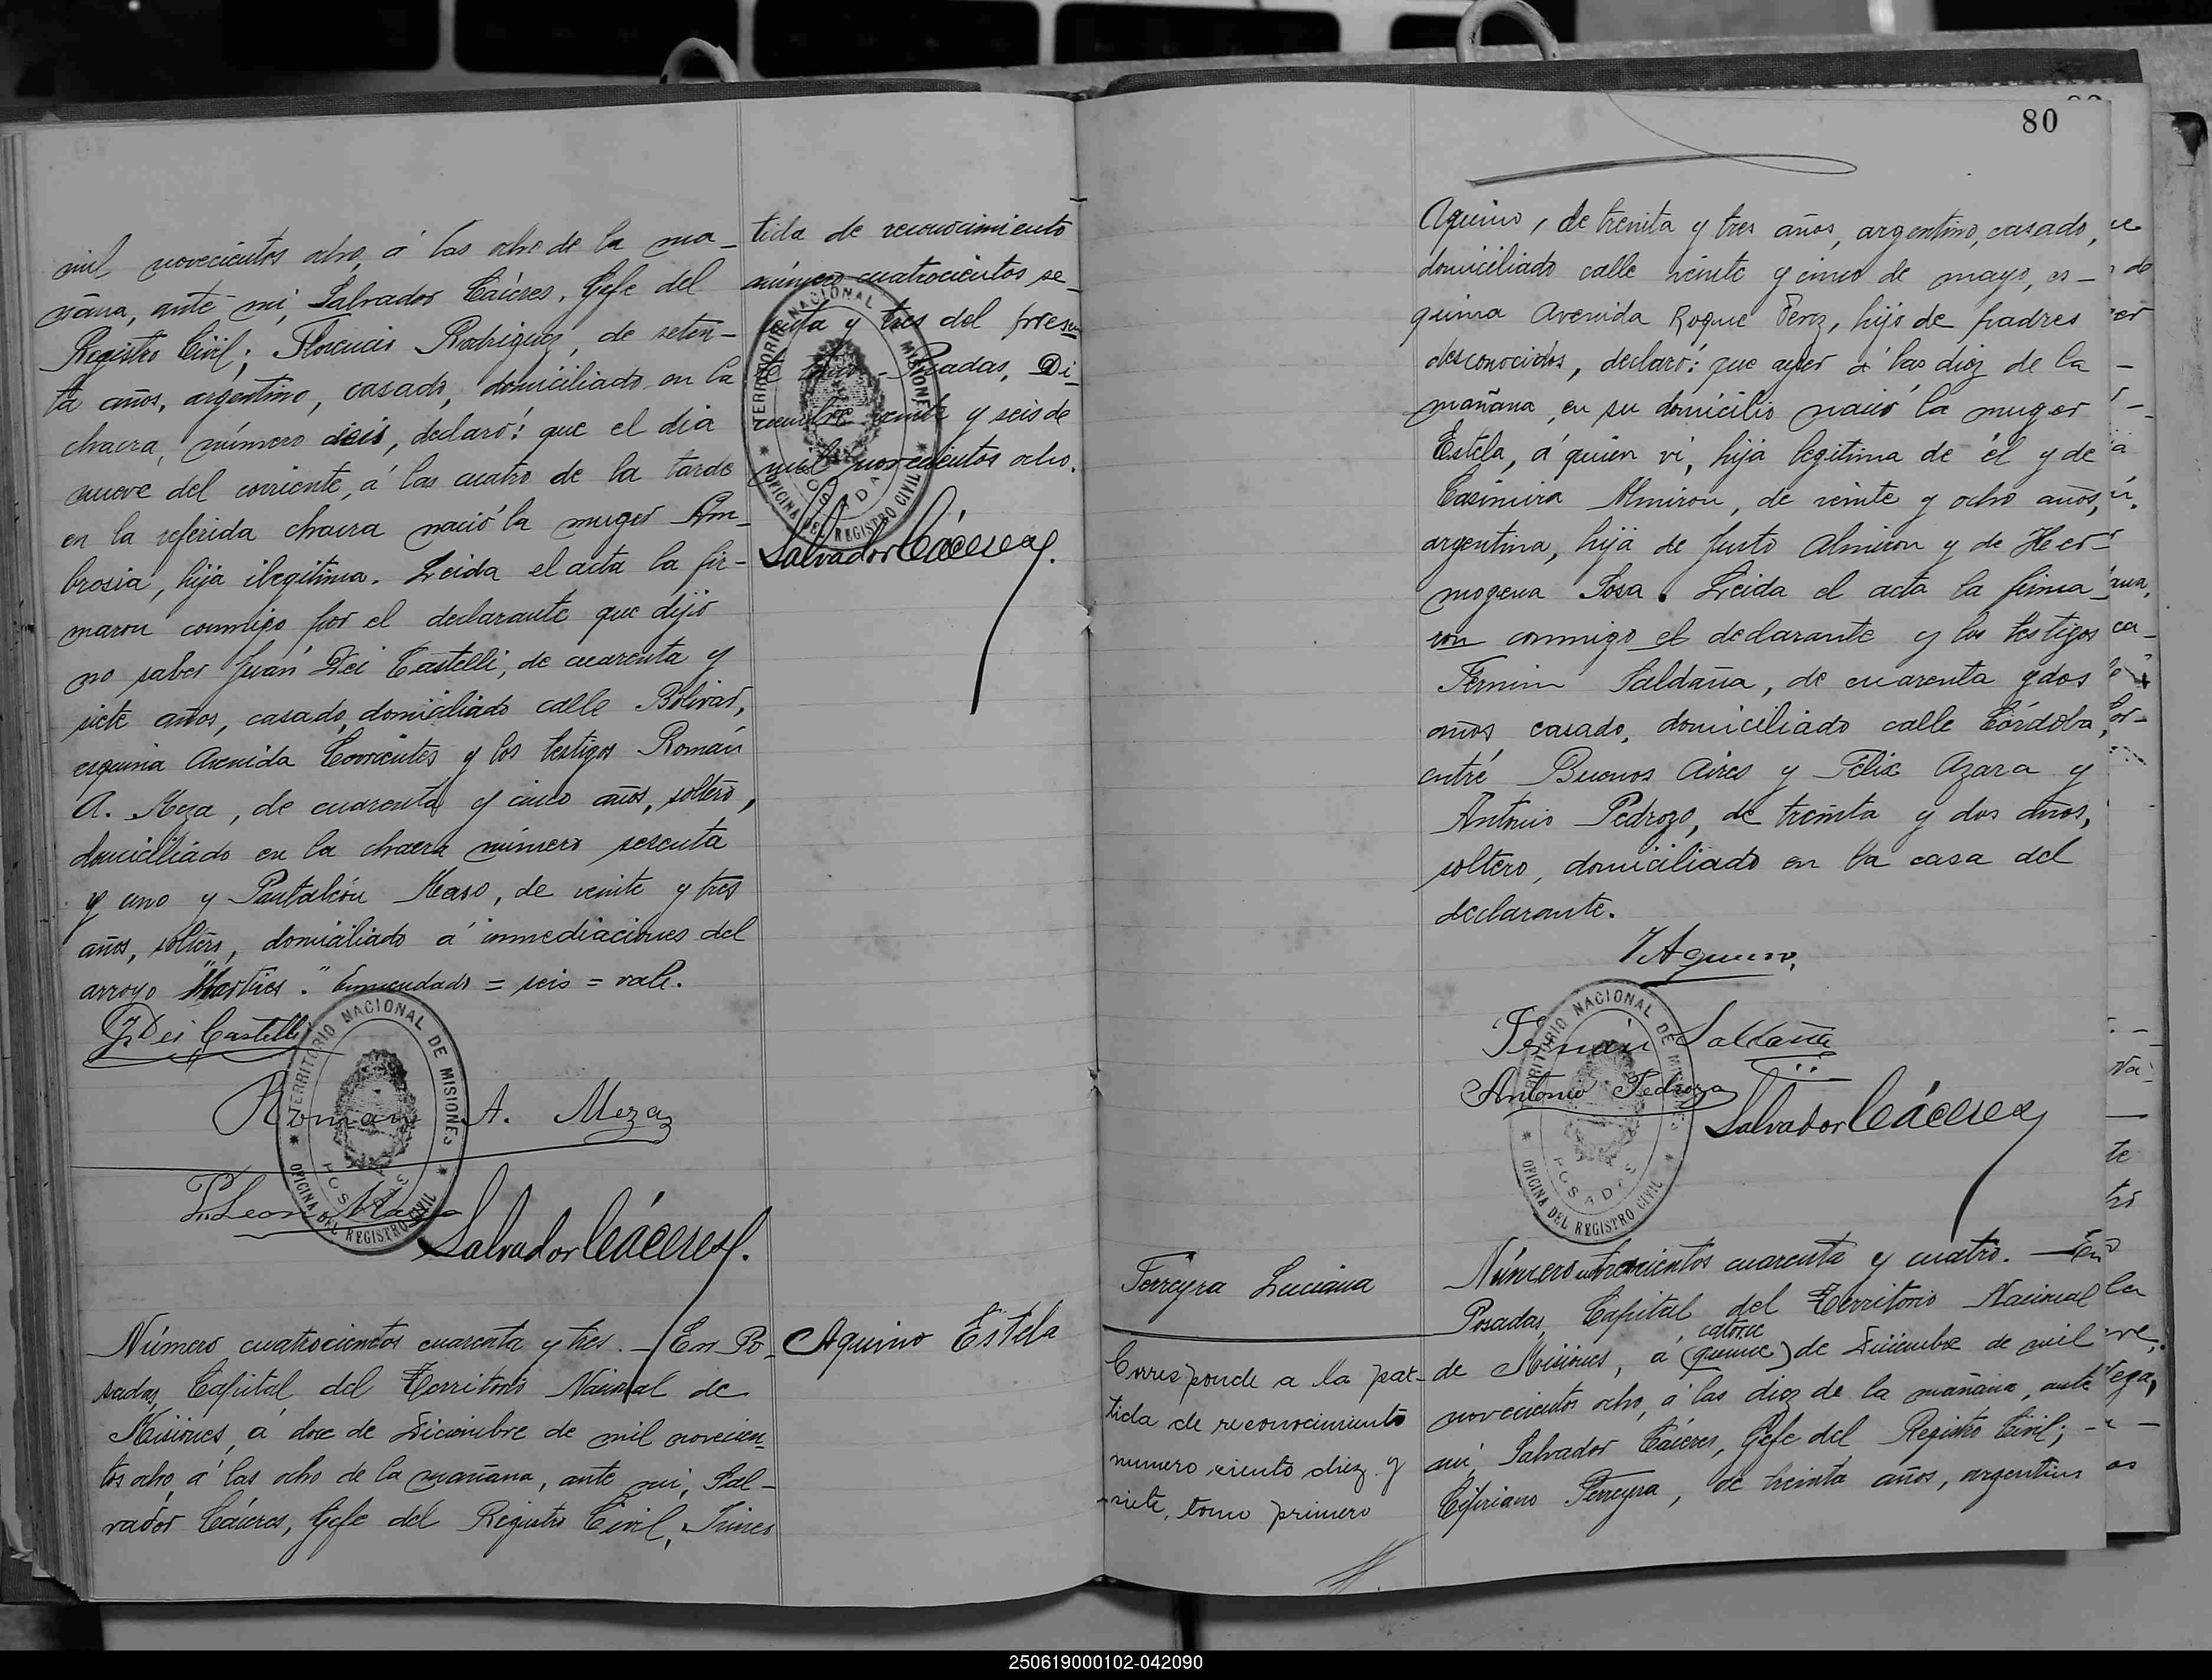 mil novecientos ocho, á las ocho de la ma-
ñana, ante mi, Salvador Cáceres, Gefe del
Registro Civil; Florencio Rodriguez, de seten-
ta años, argentino, casado, domiciliado en la
chacra, número seis, declaró: que el dia
nueve del corriente, á las cuatro de la tarde
en la referida chacra nació la muger Am-
brosia, hija ilegitima. Leida el acta la fir-
maron conmigo por el declarante que dijo
no saber Juan Dei Castelli, de cuarenta y
siete años, casado, domiciliado calle Bolivar,
esquina Avenida Corrientes y los testigos Román
A. Meza, de cuarenta y cinco años, soltero,
domiciliado en la chacra número sesenta
y uno y Pantaleón Maso, de veinte y tres
años, soltero, domiciliado á inmediaciones del
arroyo "Martires". Enmendado = seis = vale.
J Dei Castelli
Roman A. Meza
Salvador Cáceres.
TERRITORIO NACIONAL DE MISIONES
POSADAS
OFICINA DEL REGISTRO CIVIL
tida de reconocimiento
número cuatrocientos se-
tenta y tres del presen
te tomo - Posadas, Di-
ciembre veinte y seis de
mil novecientos ocho.
Salvador Cáceres.
TERRITORIO NACIONAL MISIONES
POSADAS
OFICINA DEL REGISTRO CIVIL
Aquino Estela
Número cuatrocientos cuarenta y tres. - En Po-
sadas, Capital del Territorio Nacional de
Misiones, á doce de Diciembre de mil novecien-
tos ocho, á las ocho de la mañana, ante mi, Sal-
vador Cáceres, Gefe del Registro Civil,
80
Aquino, de treinta y tres años, argentino, casado,
domiciliado calle veinte y cinco de mayo, es-
quina Avenida Roque Perez, hijo de padres
desconocidos, declaró: que ayer á las diez de la
mañana, en su domicilio nació la muger
Estela, á quien vi, hija legitima de él y de
Casimira Almiron, de veinte y ocho años,
argentina, hija de Justo Almiron y de Heer-
mogena Sosa. Leida el acta la firma-
ron conmigo el declarante y los testigos
Fermin Saldaña, de cuarenta y dos
años casado, domiciliado calle Córdoba,
entre Buenos Aires y Felix Azara y
Antonio Pedrozo, de treinta y dos años,
soltero, domiciliado en la casa del
declarante.
Aquino,
Fermin Saldaña
Antonio Pedrozo
Salvador Cáceres
TERRITORIO NACIONAL DE MISIONES
POSADAS
OFICINA DEL REGISTRO CIVIL
Ferreyra Luciana
Corresponde a la par-
tida de reconocimiento
numero ciento diez y
siete, tomo primero
Número cuatrocientos cuarenta y cuatro. - En
Posadas, Capital del Territorio Nacional
catorce
de Misiones, á (quince) de Diciembre de mil
novecientos ocho, á las diez de la mañana, ante
mi, Salvador Cáceres, Gefe del Registro Civil;
Cipriano Ferreyra, de treinta años, argentino
250619000102-042090